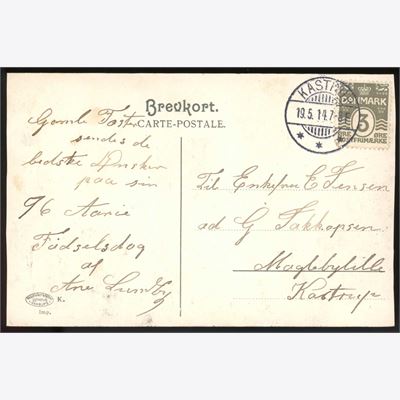 Brevkort.
CARTE-POSTALE.
Gamle Faster
sendes de
bedste Ønsker
paa sin
96 Aarie
Fødselsdag
af
Ane Lundby
K.
Imp.
KASTRUP
19.5.14.7-8 E
DANMARK
3
ØRE ØRE
POSTFRIMÆRKE
Til Enkefru E Jensen
ad G Jakkopsen
Maglebylille
Kastrup